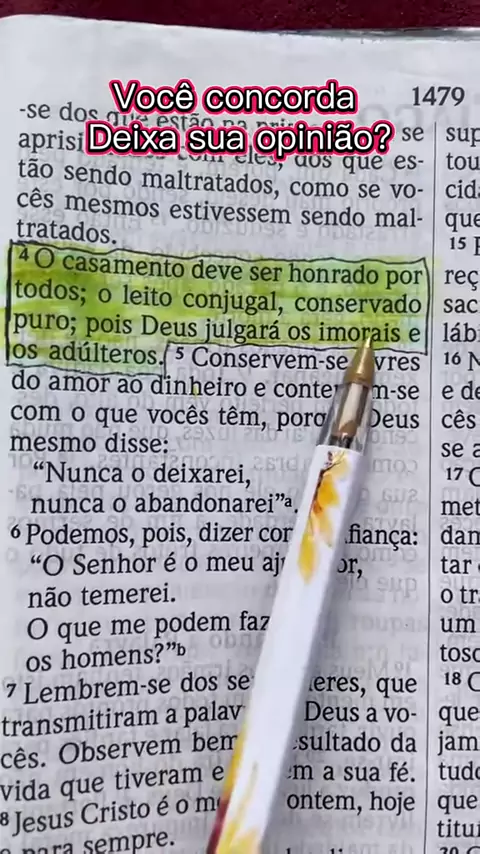 Você concorda
Deixa sua opinião?
1479
-se dos que estão na
aprisi com eles, dos que es-
tão sendo maltratados, como se vo-
cês mesmos estivessem sendo mal-
tratados.
4 O casamento deve ser honrado por
todos; o leito conjugal, conservado
puro; pois Deus julgará os imorais e
os adúlteros. 5 Conservem-se livres
do amor ao dinheiro e conte m-se
com o que vocês têm, porq Deus
mesmo disse:
“Nunca o deixarei,
nunca o abandonarei”a.
6 Podemos, pois, dizer con fiança:
“O Senhor é o meu aj or,
não temerei.
O que me podem faz
os homens?”b
7 Lembrem-se dos se eres, que
transmitiram a palav Deus a vo-
cês. Observem bem sultado da
vida que tiveram e m a sua fé.
8 Jesus Cristo é o m ontem, hoje
e para sempre.
sup
tou
cid
que
15
reç
sac
láb
16 N
e de
cês
se a
17 O
met
dam
tar
o tr
um
tosc
18 O
que
jam
tud
que
titu
20